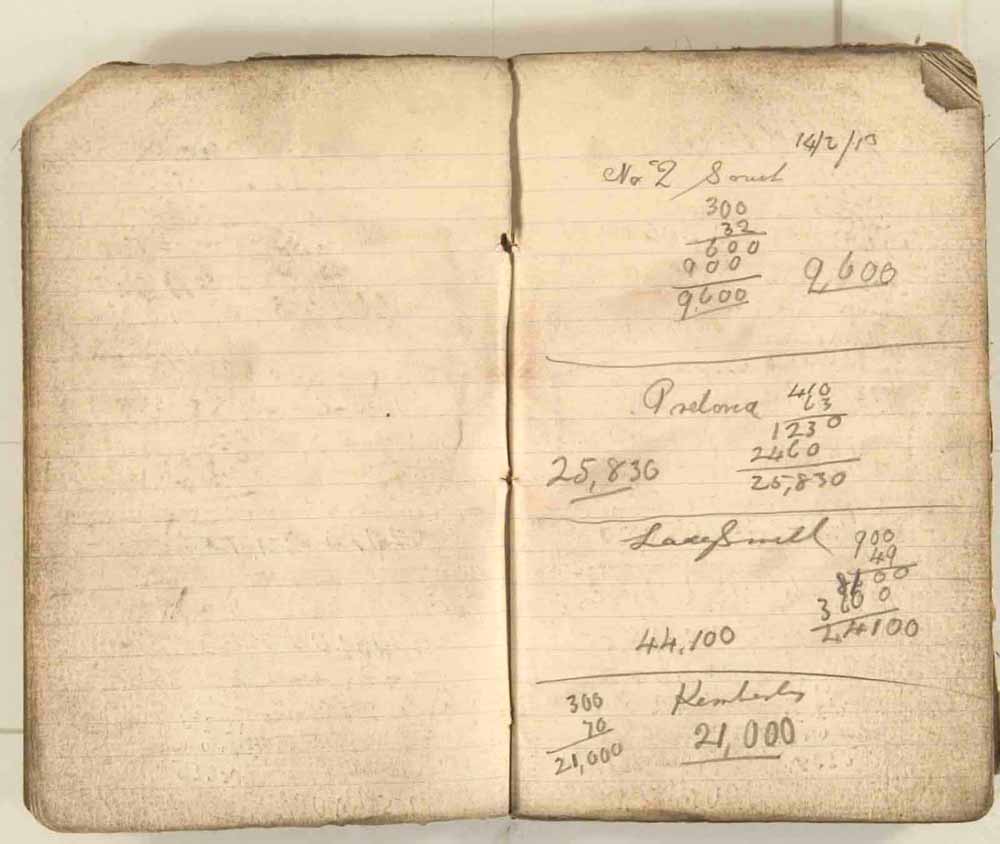 14/2/13
No 2 South
300
32
600
900
9600
9,600
Pretoria
410
63
1230
2460
25,830
25,830
LadySmith
900
49
8100
3600
44100
44,100
300
70
21,000
Kimberley
21,000